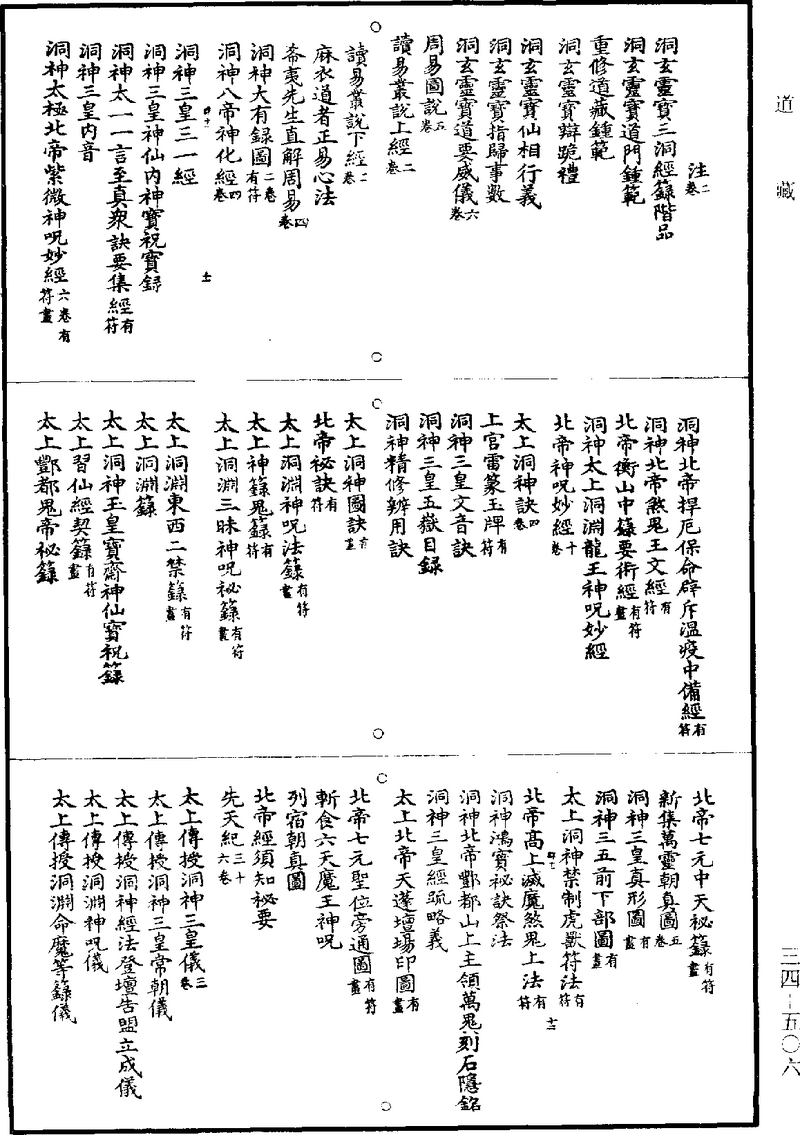 道藏
注二卷
洞玄靈寶三洞經籙階品
洞玄靈寶道門鍾範
重修道藏鍾範
洞玄靈寶辯跪禮
洞玄靈寶仙相行義
洞玄靈寶指歸事數
洞玄靈寶道要威儀六卷
周易圖說五卷
讀易叢說上經二卷
讀易叢說下經二卷
麻衣道者正易心法
希夷先生直解周易四卷
洞神大有錄圖二卷有符
洞神八帝神化經四卷
洞神三皇三一經
洞神三皇神仙內神寶祝寶錄
洞神太一一言至真衆訣要集經有符
洞神三皇內音
洞神太極北帝紫微神呪妙經六卷有符畫
洞神北帝捍厄保命辟斥溫疫中備經有符
洞神北帝煞鬼王文經有符
北帝衡山中籙要術經有符畫
洞神太上洞淵龍王神呪妙經
北帝神呪妙經十卷
太上洞神訣四卷
上官雷篆玉牌有符
洞神三皇文音訣
洞神三皇五嶽目錄
洞神精修辨用訣
太上洞神圖訣有畫
北帝祕訣有符
太上洞淵神呪法籙有符畫
太上神籙鬼籙有符
太上洞淵三昧神呪祕籙有符畫
太上洞淵東西二禁籙有符畫
太上洞淵籙
太上洞神玉皇寶齋神仙寶祝籙
太上習仙經契籙有符畫
太上酆都鬼帝祕籙
北帝七元中天祕籙有符畫
新集萬靈朝真圖五卷
洞神三皇真形圖有畫
洞神三五前下部圖有畫
太上洞神禁制虎獸符法有符
北帝高上滅魔煞鬼上法有符
洞神鴻寶祕訣祭法
洞神北帝酆都山上主領萬鬼刻石隱銘
洞神三皇經疏略義
太上北帝天蓬壇場印圖有畫
北帝七元聖位旁通圖有符畫
斬食六天魔王神呪
列宿朝真圖
北帝經須知祕要
先天紀三十六卷
太上傳授洞神三皇儀三卷
太上傳授洞神三皇常朝儀
太上傳授洞神經法登壇告盟立成儀
太上傳授洞淵神呪儀
太上傳授洞淵命魔等籙儀
三四-五〇六